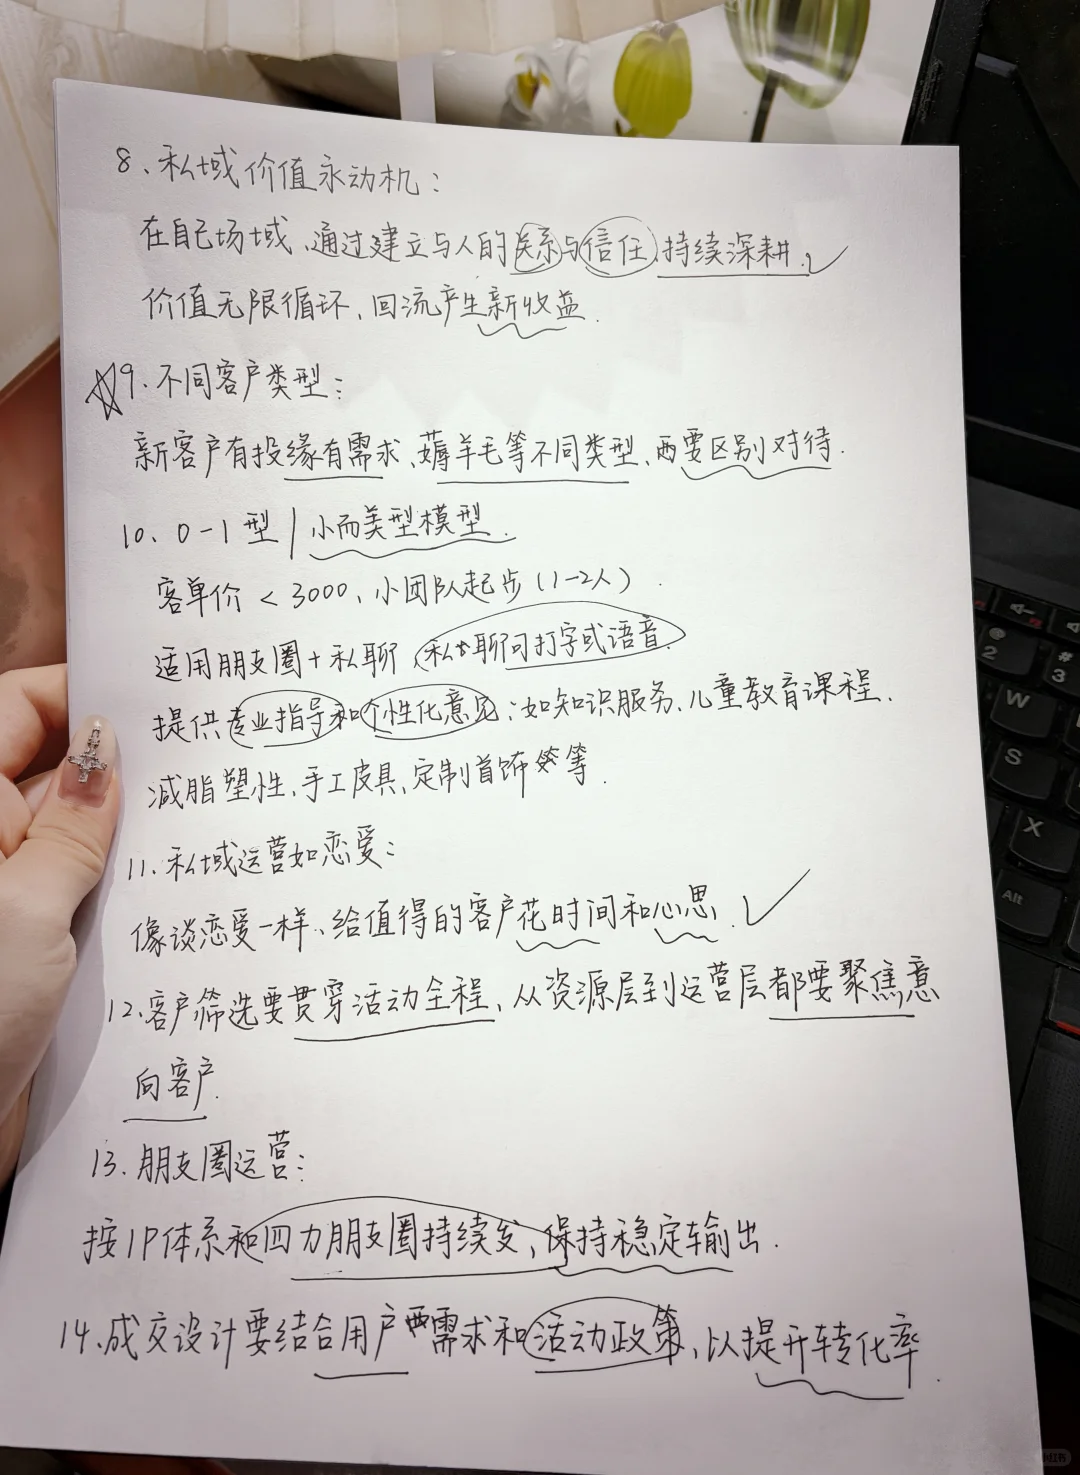 8、私域价值永动机：
在自己场域、通过建立与人的关系与信任、持续深耕、
价值无限循环、回流产生新收益.
9.不同客户类型：
新客户有投缘有需求、薅羊毛等不同类型、要区别对待.
10、0-1型/小而美型模型.
客单价<3000、小团队起步(1-2人).
适用朋友圈+私聊、私聊可打字或语音.
提供专业指导和个性化意见:如知识服务、儿童教育课程.
减脂塑性、手工皮具、定制首饰等.
11.私域运营如恋爱：
像谈恋爱一样、给值得的客户花时间和心思.
12.客户筛选要贯穿活动全程、从资源层到运营层都要聚焦意
向客户.
13.朋友圈运营：
按IP体系和四力朋友圈持续发、保持稳定输出.
14.成交设计要结合用户需求和活动政策、以提升转化率.
@
2
#
3
W
S
X
Alt
小红书